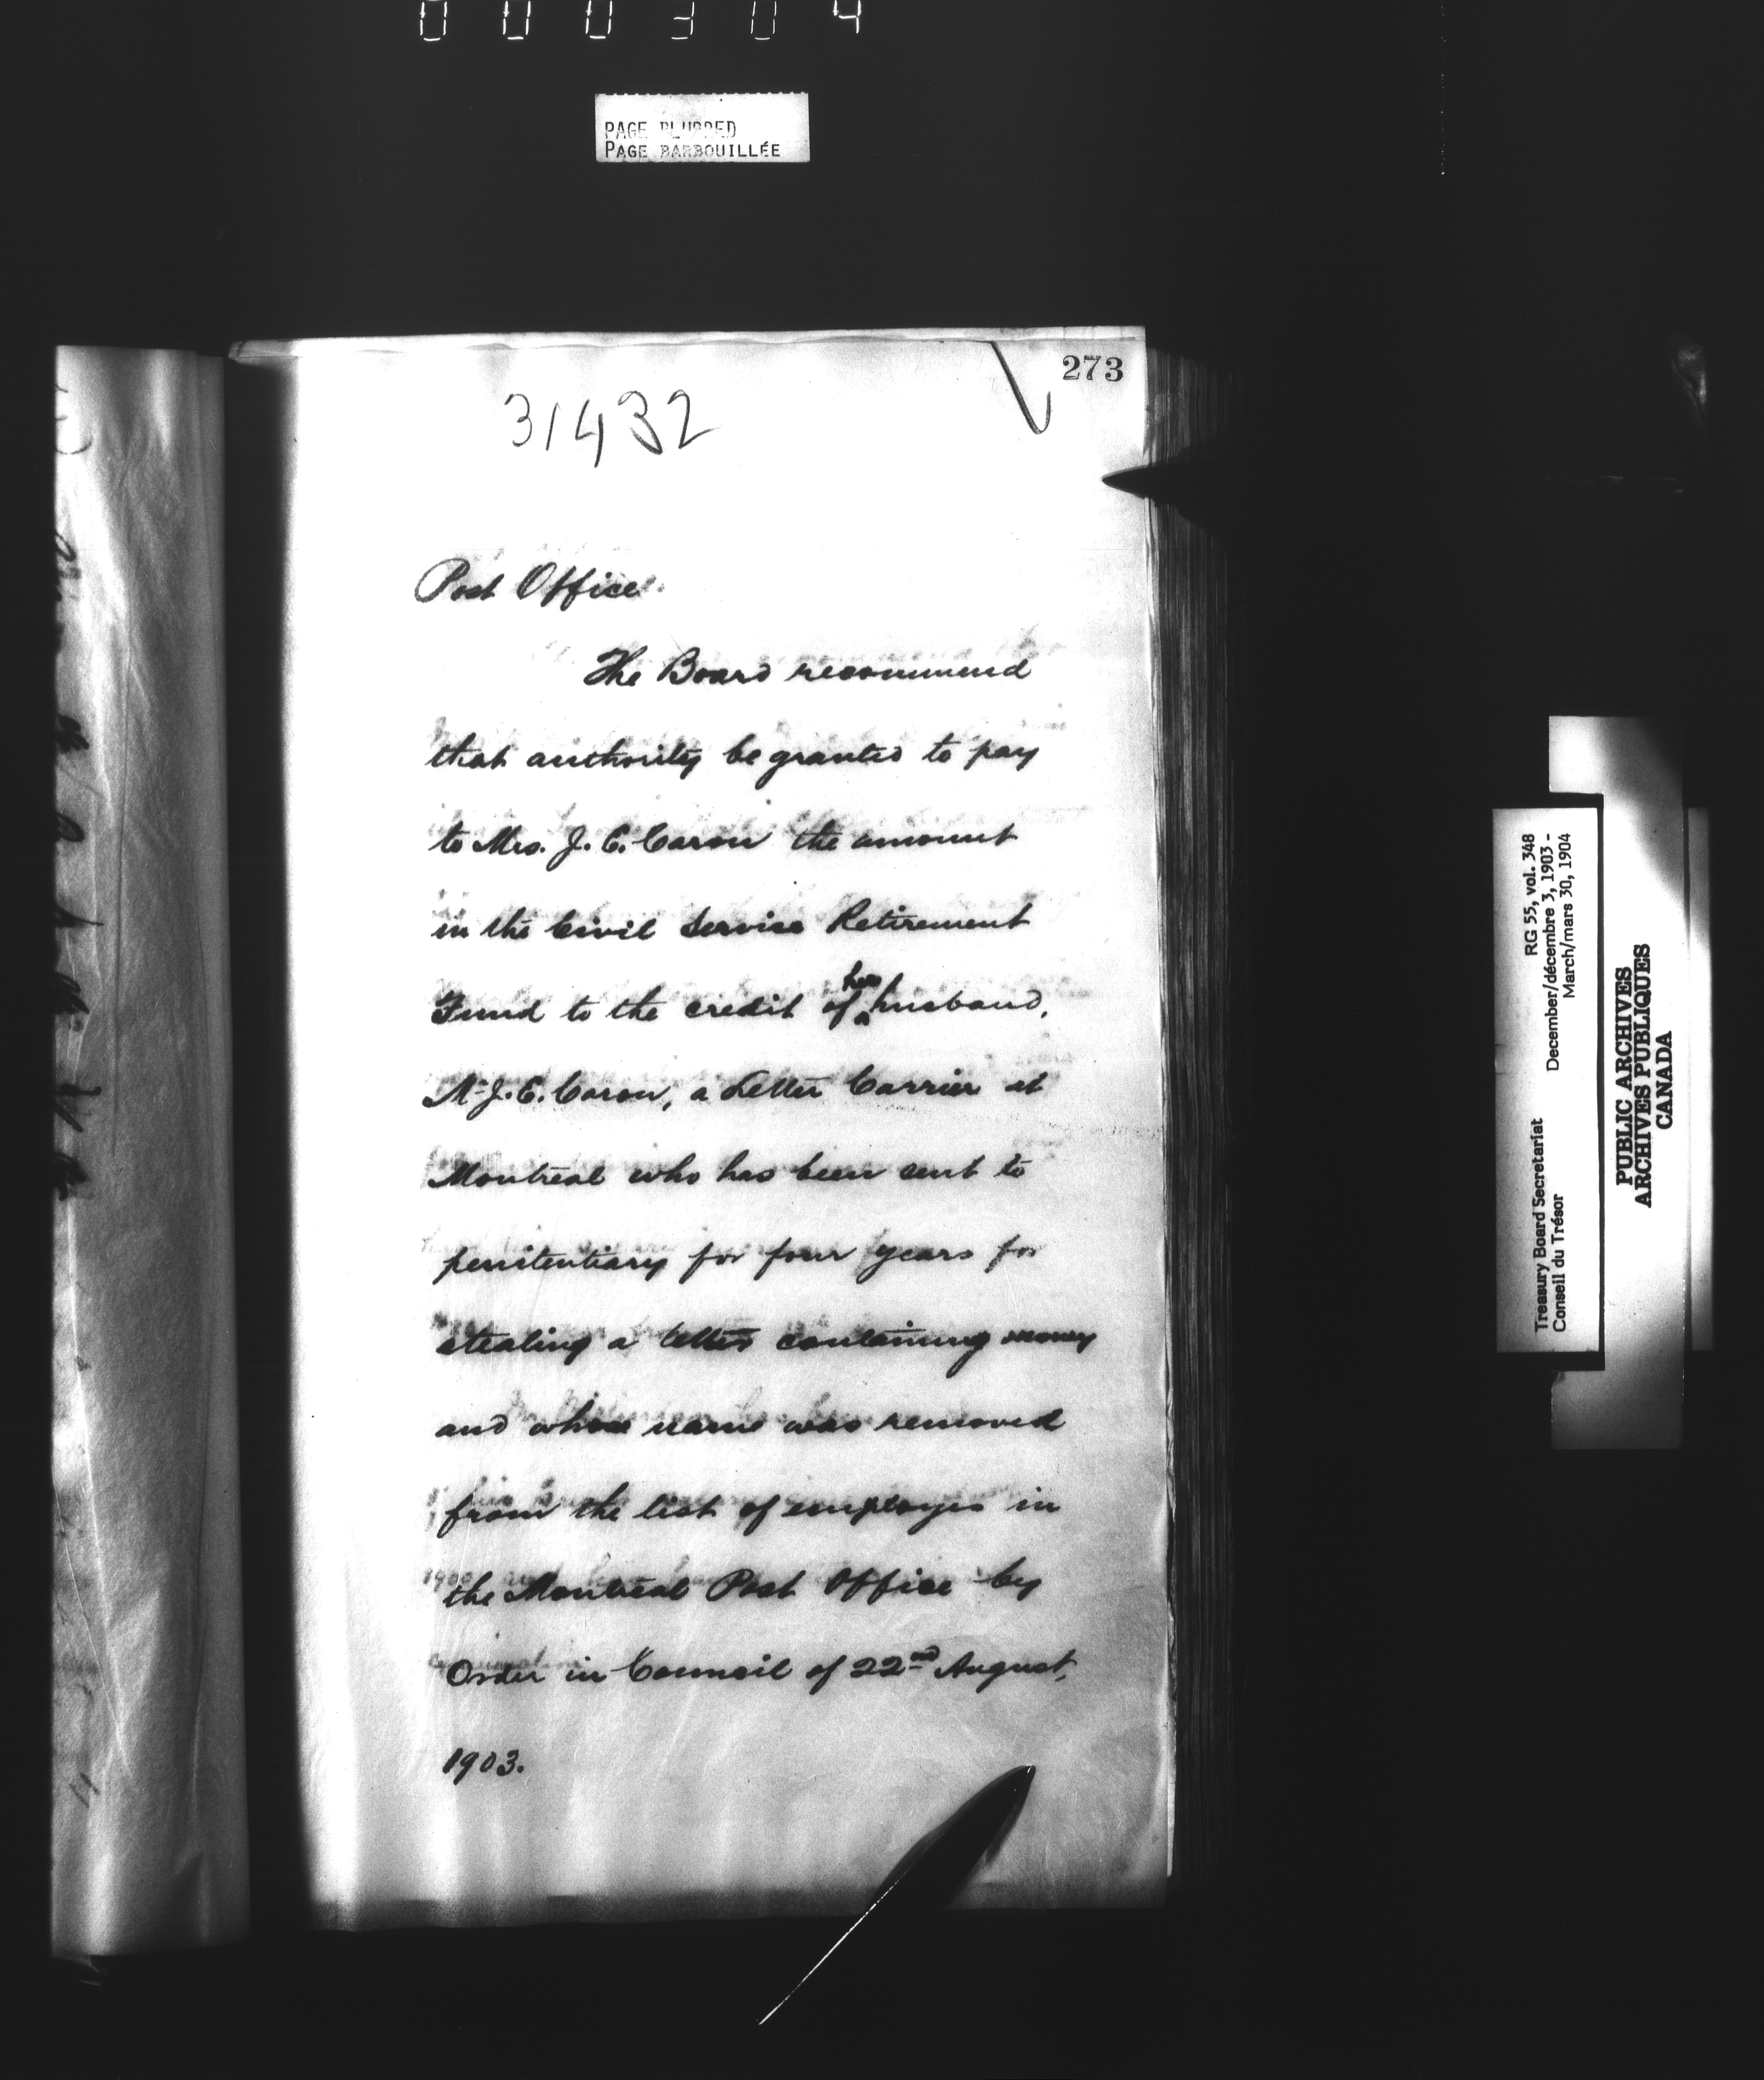 000304
PAGE BLURRED
PAGE BARBOUILLÉE
273
31432
Post Office.
The Board recommend
that authority be granted to pay
to Mrs. J. E. Caron the amount
in the Civil Service Retirement
Fund to the credit of her husband,
Mr J. E. Caron, a Letter Carrier at
Montreal who has been sent to
penitentiary for four years for
stealing a letter containing money
and whose name was removed
from the list of employes in
the Montreal Post Office by
Order in Council of 22nd August,
1903.
Treasury Board Secretariat RG 55, vol. 348
Conseil du Trésor December/décembre 3, 1903 -
March/mars 30, 1904
PUBLIC ARCHIVES
ARCHIVES PUBLIQUES
CANADA